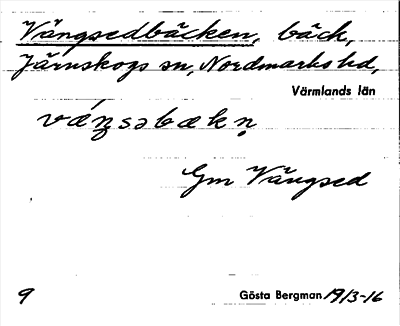 Vängsedbäcken, bäck,
Järnskogs sn, Nordmarks hd,
Värmlands län
væ̀ŋsəbækn̥
Gm Vängsed
9 Gösta Bergman 19/3-16